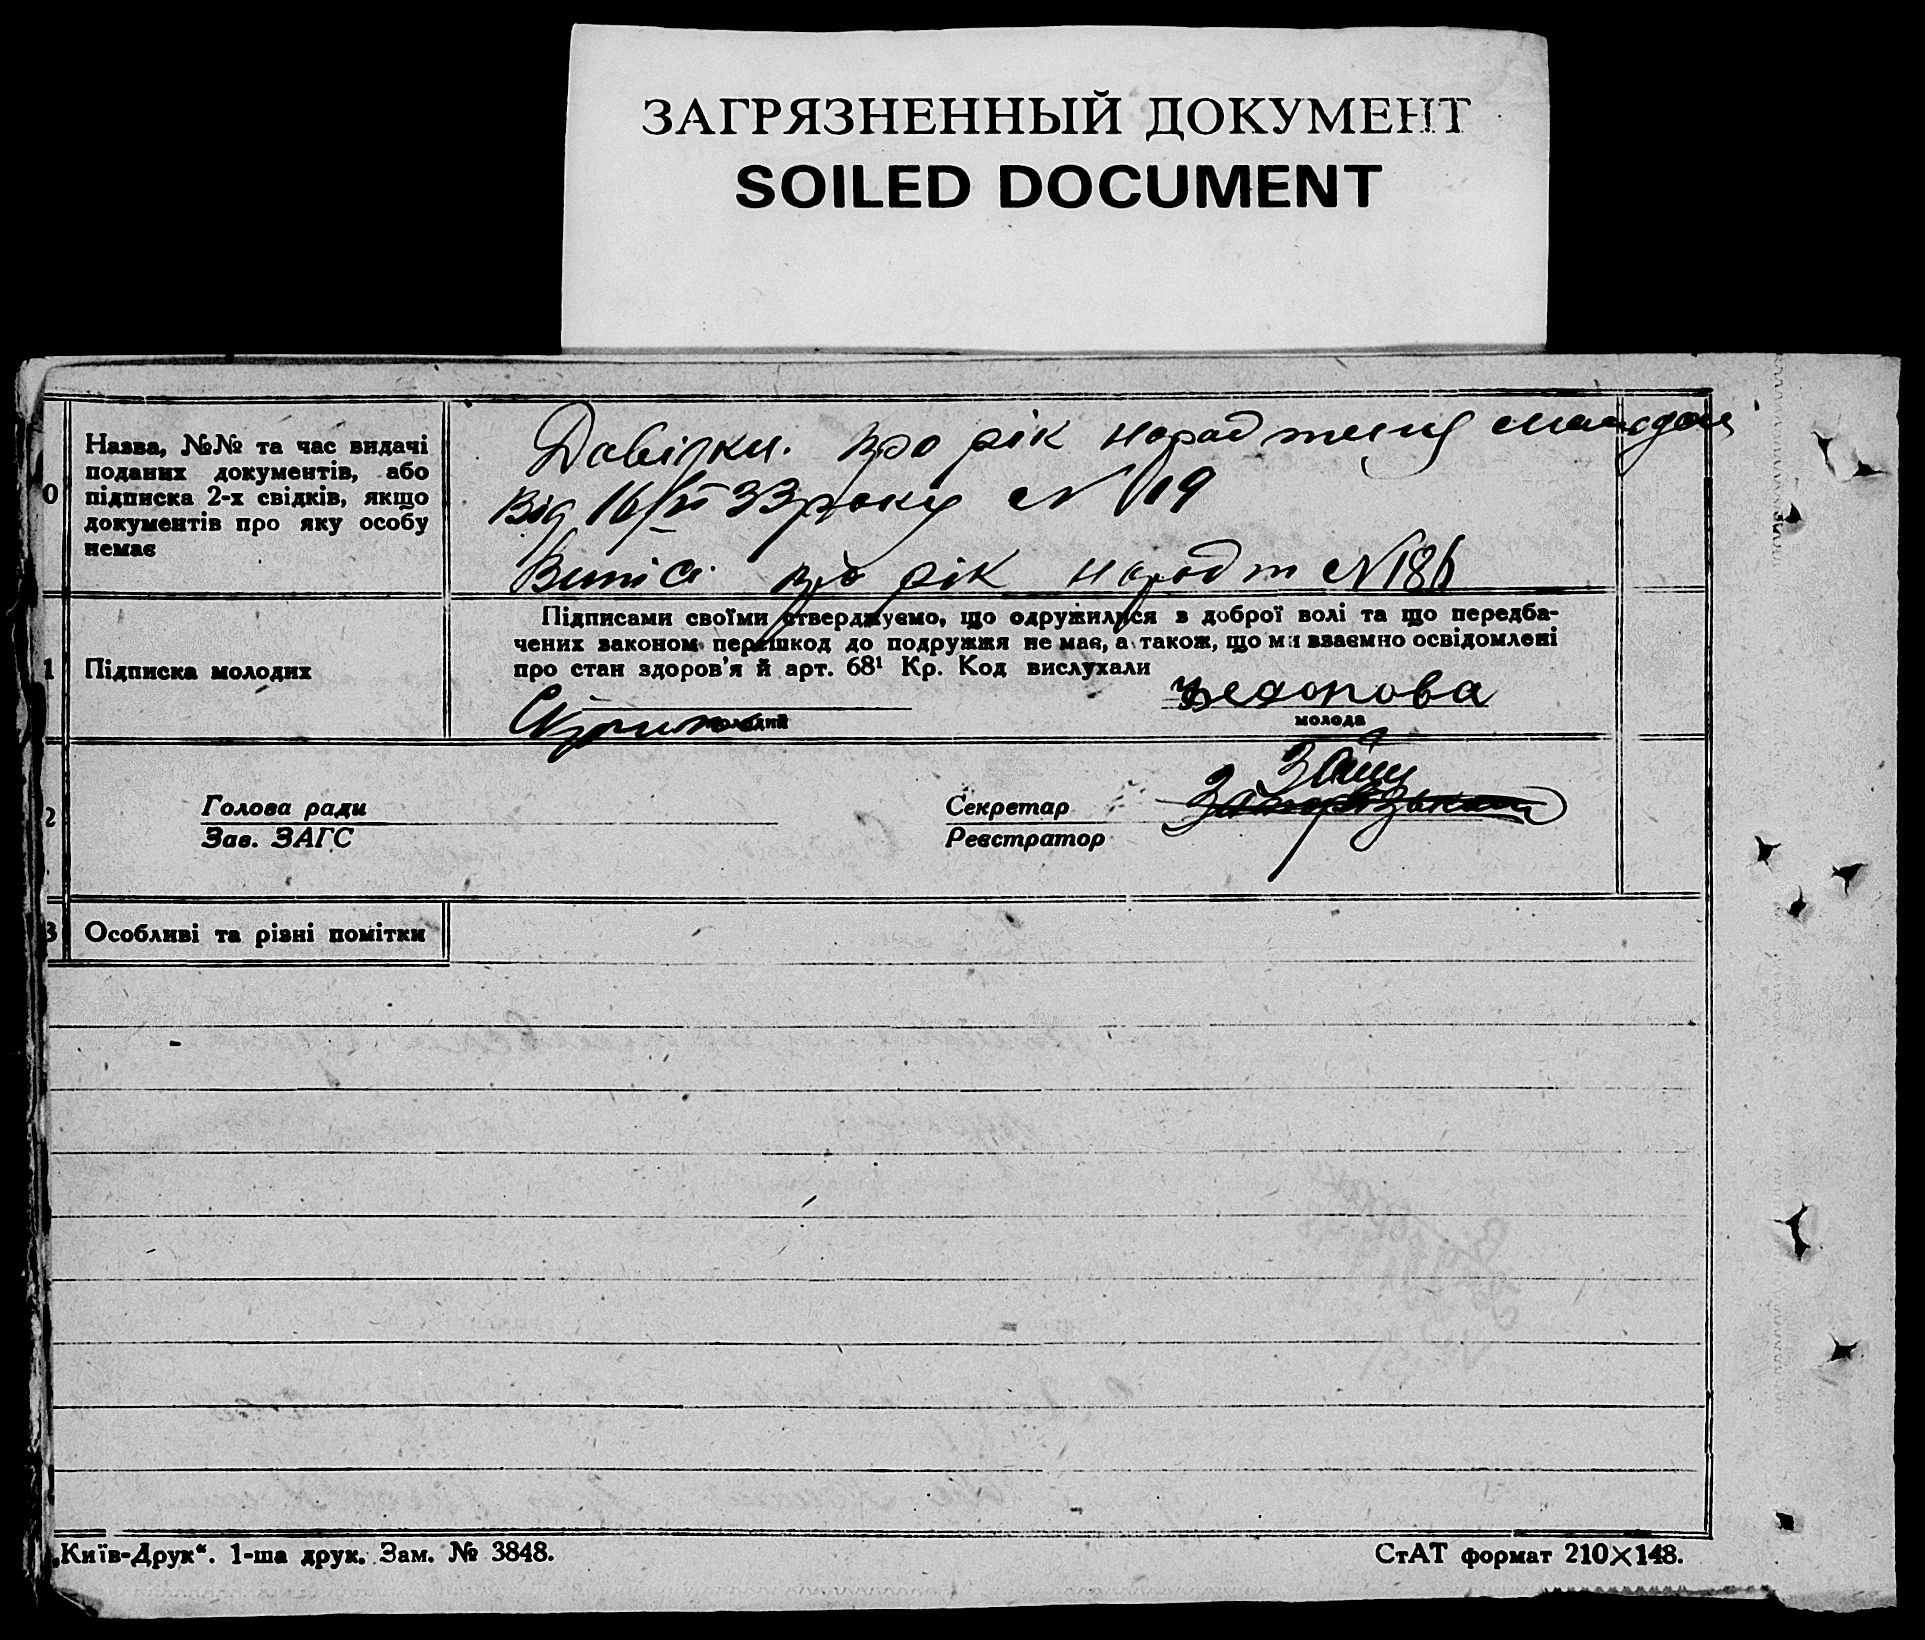 ЗАГРЯЗНЕННЫЙ ДОКУМЕНТ
SOILED DOCUMENT
0
Назва, №№ та час видачі
поданих документів, або
підписка 2-х свідків, якщо
документів про яку особу
немає
Довідки. про рік народження
Від 16/ 33 року N 19
Виписи про рік народж N 186
1
Підписка молодих
Підписами своїми стверджуємо, що одружилися в доброї волі та що передба-
чених законом перешкод до подружжя не має, а також, що ми взаємно освідомлені
про стан здоров'я й арт. 68¹ Кр. Код вислухали
молодий
Федорова
молода
2
Голова ради
Зав. ЗАГС
Секретар
Реєстратор
3
Особливі та різні помітки
„Київ-Друк“. 1-ша друк. Зам. № 3848.
СтАТ формат 210×148.